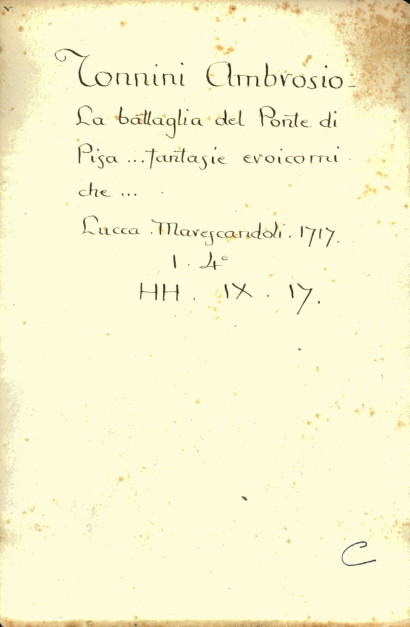 Tonnini Ambrosio-
La battaglia del Ponte di
Pisa ... fantasie eroicomi-
che ...
Lucca. Marescandoli. 1717.
1. 4°
HH. IX. 17.
C